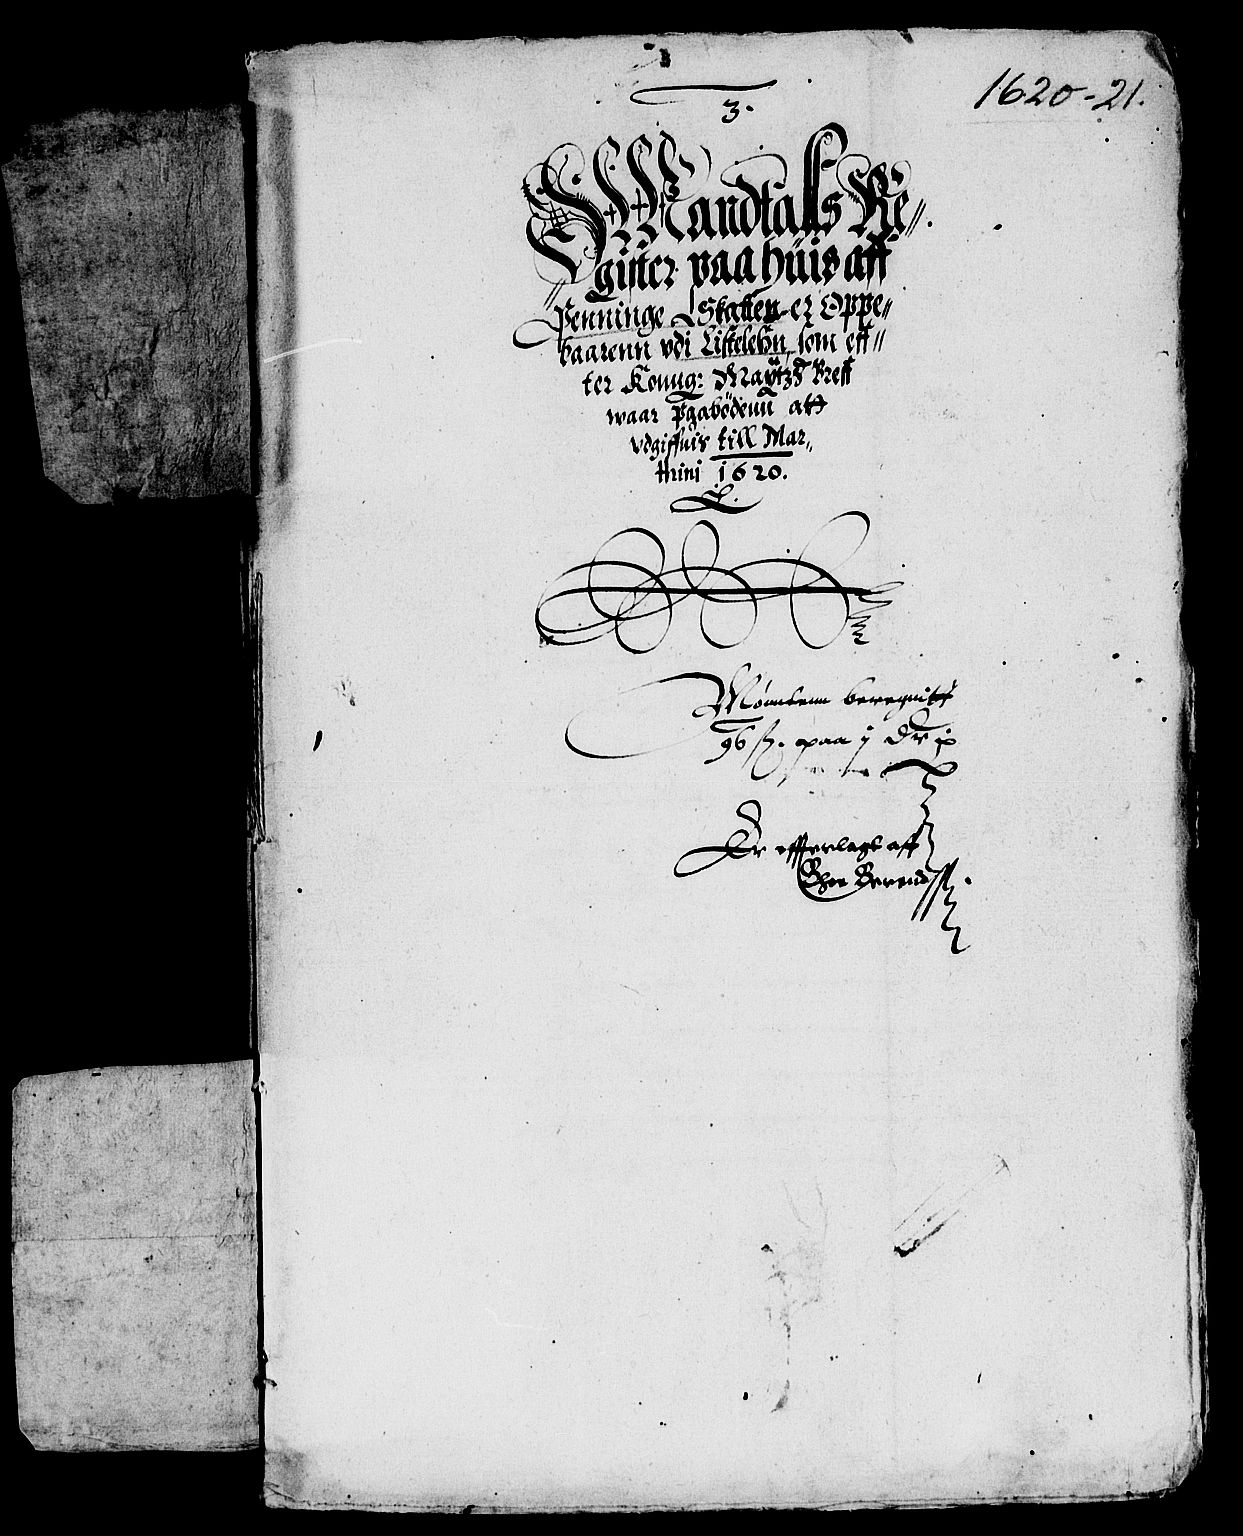 1620-21.
3.
Mandtalls Re-
gister paa huis aff
Penninge Skatten er Oppe-
baarenn udi Listelehn, som eff-
ter Konng: Maytz Breff
waar pgabödenn att
udgiffuis till Mar-
thini 1620.
Mönttenn beregnit
96 ß. paa j Dr
Er offverlagt aff